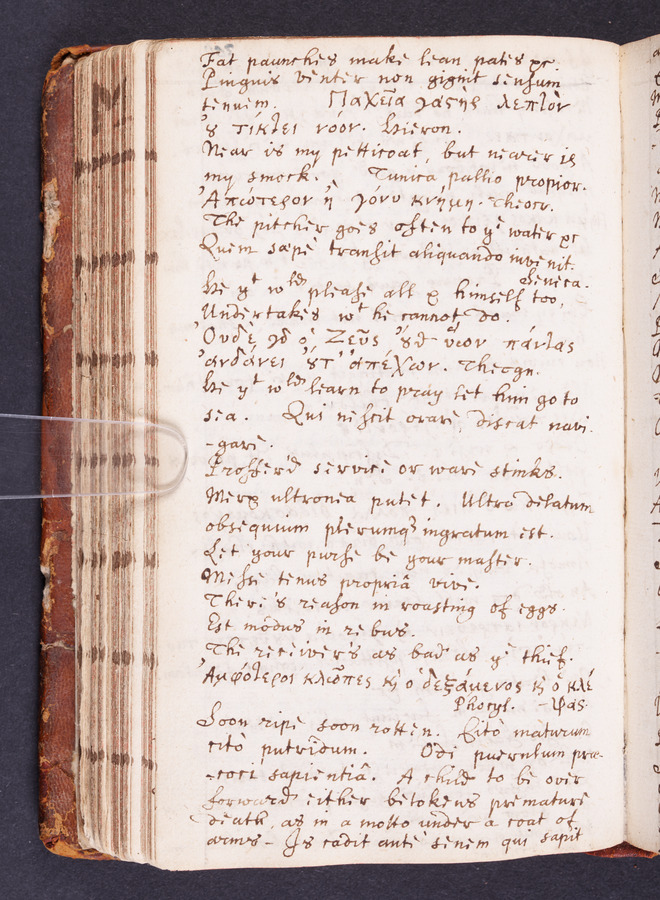 Fat paunches make lean pates &c.
Pinguis venter non gignit sensum
tenuem. Παχεῖα γαςὴρ λεπτὸν
ȣ τίκτει νόον. Hieron.
Near is my petticoat, but nearer is
my smock. Tunica pallio propior.
Ἀπώτερον ἢ γόνυ κνήμη. Theocr.
The pitcher goes often to yᵉ water &c
Quem sæpe transit aliquando invenit.
Seneca.
He yᵗ wᵘˡᵈ please all & himself too,
Undertakes wᵗ he cannot do.
Ὀυδὲ γὸ ὁ Ζεῦς ȣ̓θ' ὕων πάντας
ἁνδάνει ȣ̓τ' ἀπέχων. Theogn.
He yᵗ wᵘˡᵈ learn to pray let him go to
sea. Qui nescit orare, discat navi
-gare.
Proffer'd service or ware stinks.
Merx ultronea putet. Ultrò delatum
obsequium plerumq₃ ingratum est.
Let your purse be your master.
Messe tenus propriâ vive.
There's reason in roasting of eggs.
Est modus in rebus.
The receiver's as bad as yᵉ thief.
Ἀμφότεροι κλῶπες κὶ ὁ δεξάμενος κὶ ὁ κλέ
Phocyl. -ψας
Soon ripe soon rotten. Citò maturum
citò putridum. Odi puerulum præ
-coci sapientiâ. A child to be over
forward either betokens premature
death, as in a motto under a coat of
armes - Is cadit ante senem qui sapit